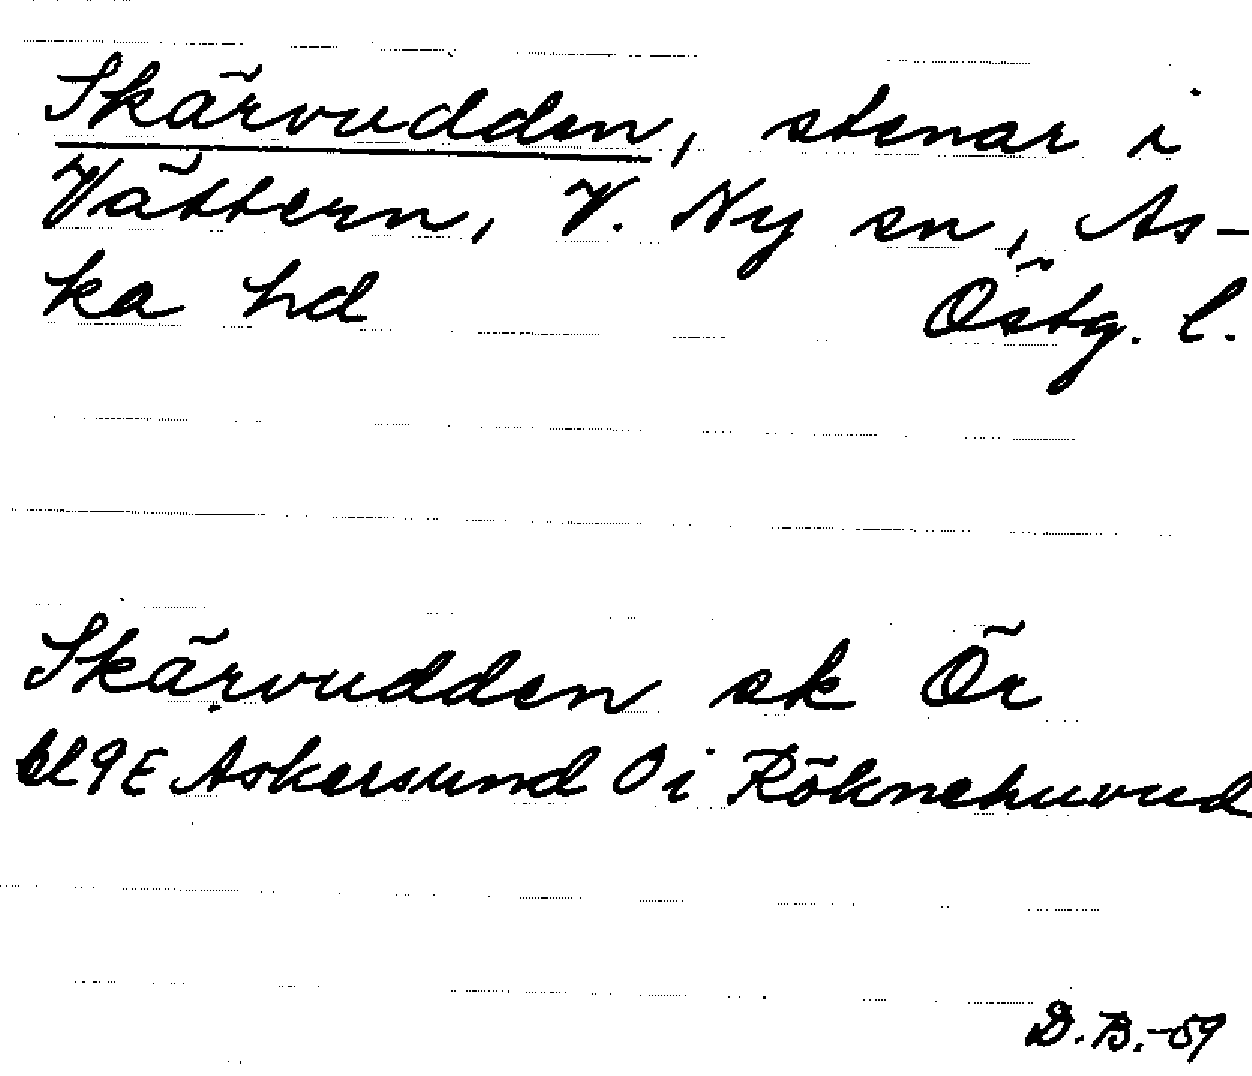 Skärvudden, stenar i
Vättern, V. Ny sn, As-
ka hd Östg. l.
Skärvudden sk Ör
bl 9E Askersund O i Röknehuvud
D.B.-59